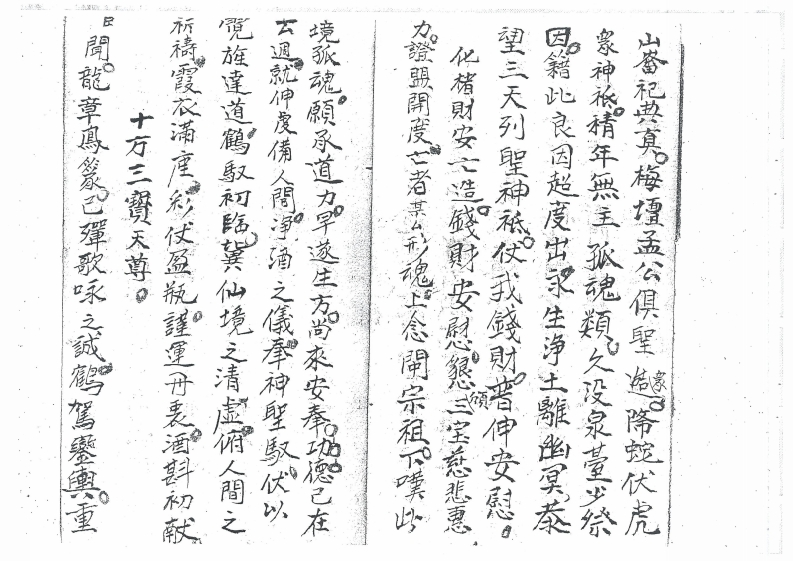 山嵛祀典真梅壇孟公俱聖造眾降蛇伏虎
眾神祗積年無主孤魂類久没泉臺少祭
因籍此良因超度出永生浄土離幽冥恭
望三天列聖神祗伏我錢財普伸安慰
化楮財安亡造錢財安慰懇願三宝慈悲惠
力證盟開度亡者某公形魂上念閫宗祖下嘆此
境孤魂願承道力早遂生方尚來安奉功德已在
云週就伸虔備人間浄酒之儀奉神聖馭伏以
霓旌達道鶴馭初臨冀仙境之清虛俯人間之
祈禱霞衣滿座彩仗盈瓶謹運丹衷酒斟初献
十万三寶天尊
臣聞龍章鳳篆已殫歌咏之誠鶴駕鑾輿重